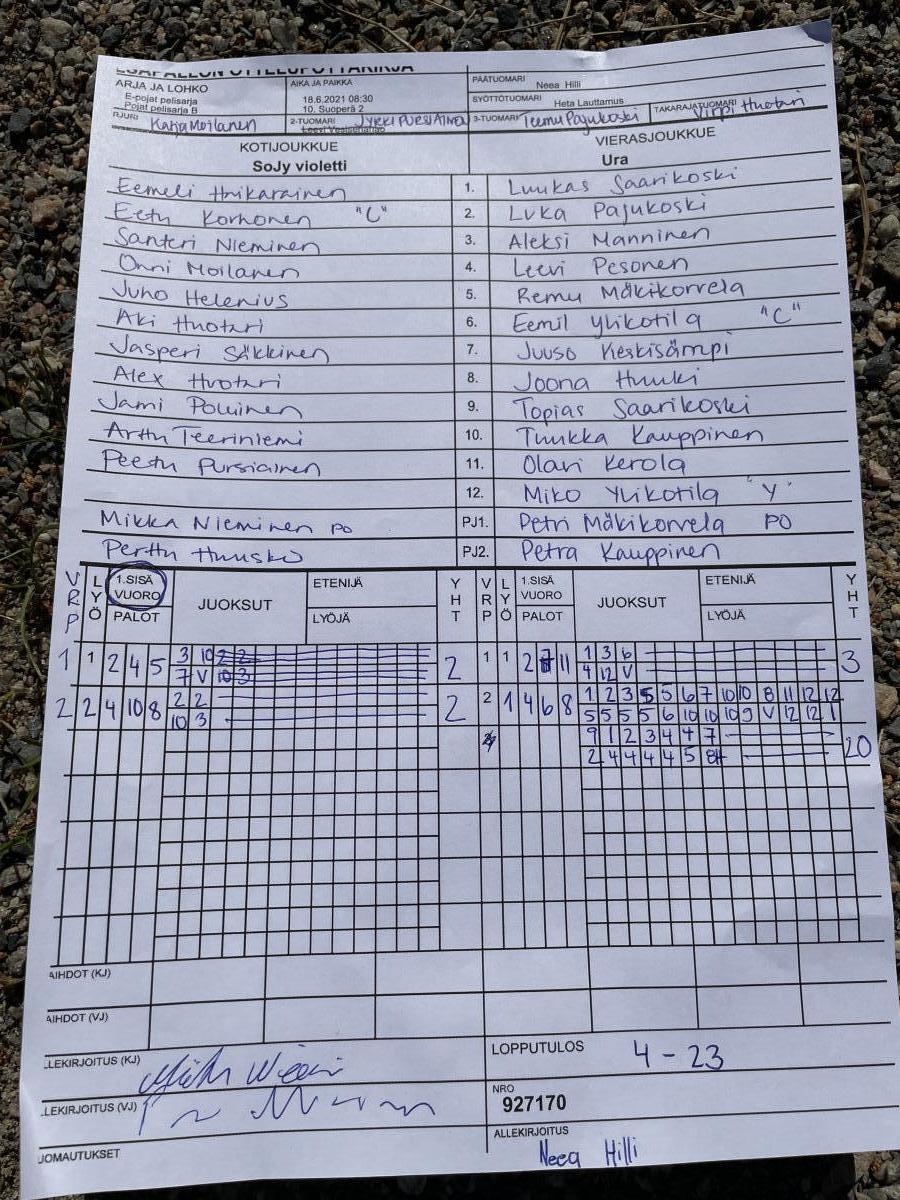 ESÄPALLON OTTELUPÖYTÄKIRJA
ARJA JA LOHKO AIKA JA PAIKKA PÄÄTUOMARI Neea Hilli
E-pojat pelisarja 18.6.2021 08:30 SYÖTTÖTUOMARI Heta Lauttamus
Pojat pelisarja B 10. Suoperä 2
RJURI Katja Moilanen 2-TUOMARI JYRKI PURSIAINEN 3-TUOMARI Teemu Pajukoski TAKARAJATUOMARI Virpi Huotari
KOTIJOUKKUE VIERASJOUKKUE
SoJy violetti Ura
Eemeli Hnikarainen 1. Luukas Saarikoski
Eetu Korhonen "C" 2. Luka Pajukoski
Santeri Nieminen 3. Aleksi Manninen
Onni Moilanen 4. Leevi Pesonen
Juho Helenius 5. Remu Mäkikorvela
Aki Huotari 6. Eemil Ylikotila "C"
Jasperi Säkkinen 7. Juuso Keskisämpi
Alex Huotari 8. Joona Huuki
Jami 9. Topias Saarikoski
Arttu Teeriniemi 10. Tuukka Kauppinen
Peetu Pursiainen 11. Olavi Kerola
12. Miko Ylikotila "Y"
Mikka Nieminen PO PJ1. Petri Mäkikorvela PO
Perttu Huusko PJ2. Petra Kauppinen
VRP LYÖ 1.SISÄ VUORO PALOT JUOKSUT ETENIJÄ LYÖJÄ YHT VRP LYÖ 1.SISÄ VUORO PALOT JUOKSUT ETENIJÄ LYÖJÄ YHT
1 1 2 4 5 3 10 2 2 2 1 1 2 7 11 1 3 6 3
7 V 10 3 4 12 V
2 2 4 10 8 2 2 2 2 1 4 6 8 1 2 3 5 5 6 7 10 10 8 11 12 12
10 3 5 5 5 5 6 10 10 10 9 V 12 12 1
9 1 2 3 4 4 7 20
2 4 4 4 4 5 8
AIHDOT (KJ)
AIHDOT (VJ)
LEKIRJOITUS (KJ) LOPPUTULOS 4 - 23
LEKIRJOITUS (VJ) NRO
927170
JOMAUTUKSET ALLEKIRJOITUS
Neea Hilli